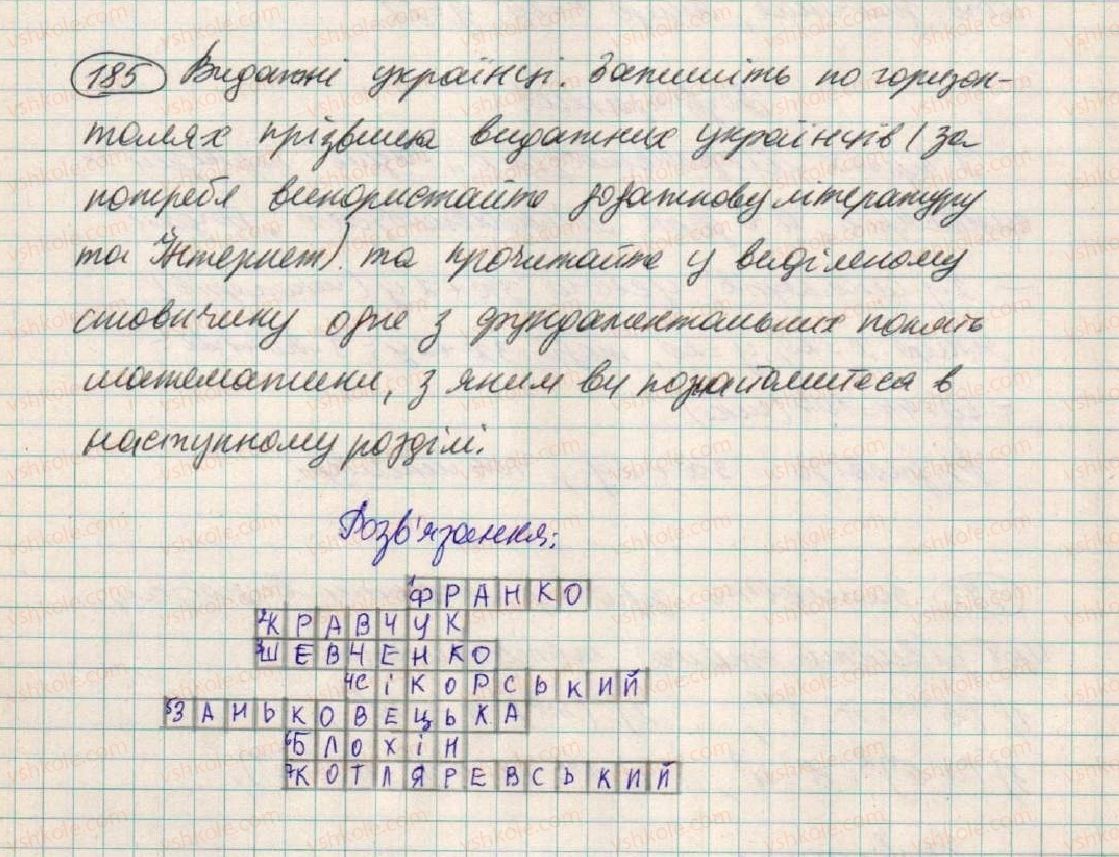 185 Видатні українці. Запишіть по горизон-
талях прізвища видатних українців (за
потреби використайте додаткову літературу
та Інтернет) та прочитайте у виділеному
стовпчику одне з фундаментальних понять
математики, з яким ви познайомитеся в
наступному розділі.
Розв'язання:
1ФРАНКО
2КРАВЧУК
3ШЕВЧЕНКО
4СІКОРСЬКИЙ
5ЗАНЬКОВЕЦЬКА
6БЛОХІН
7КОТЛЯРЕВСЬКИЙ